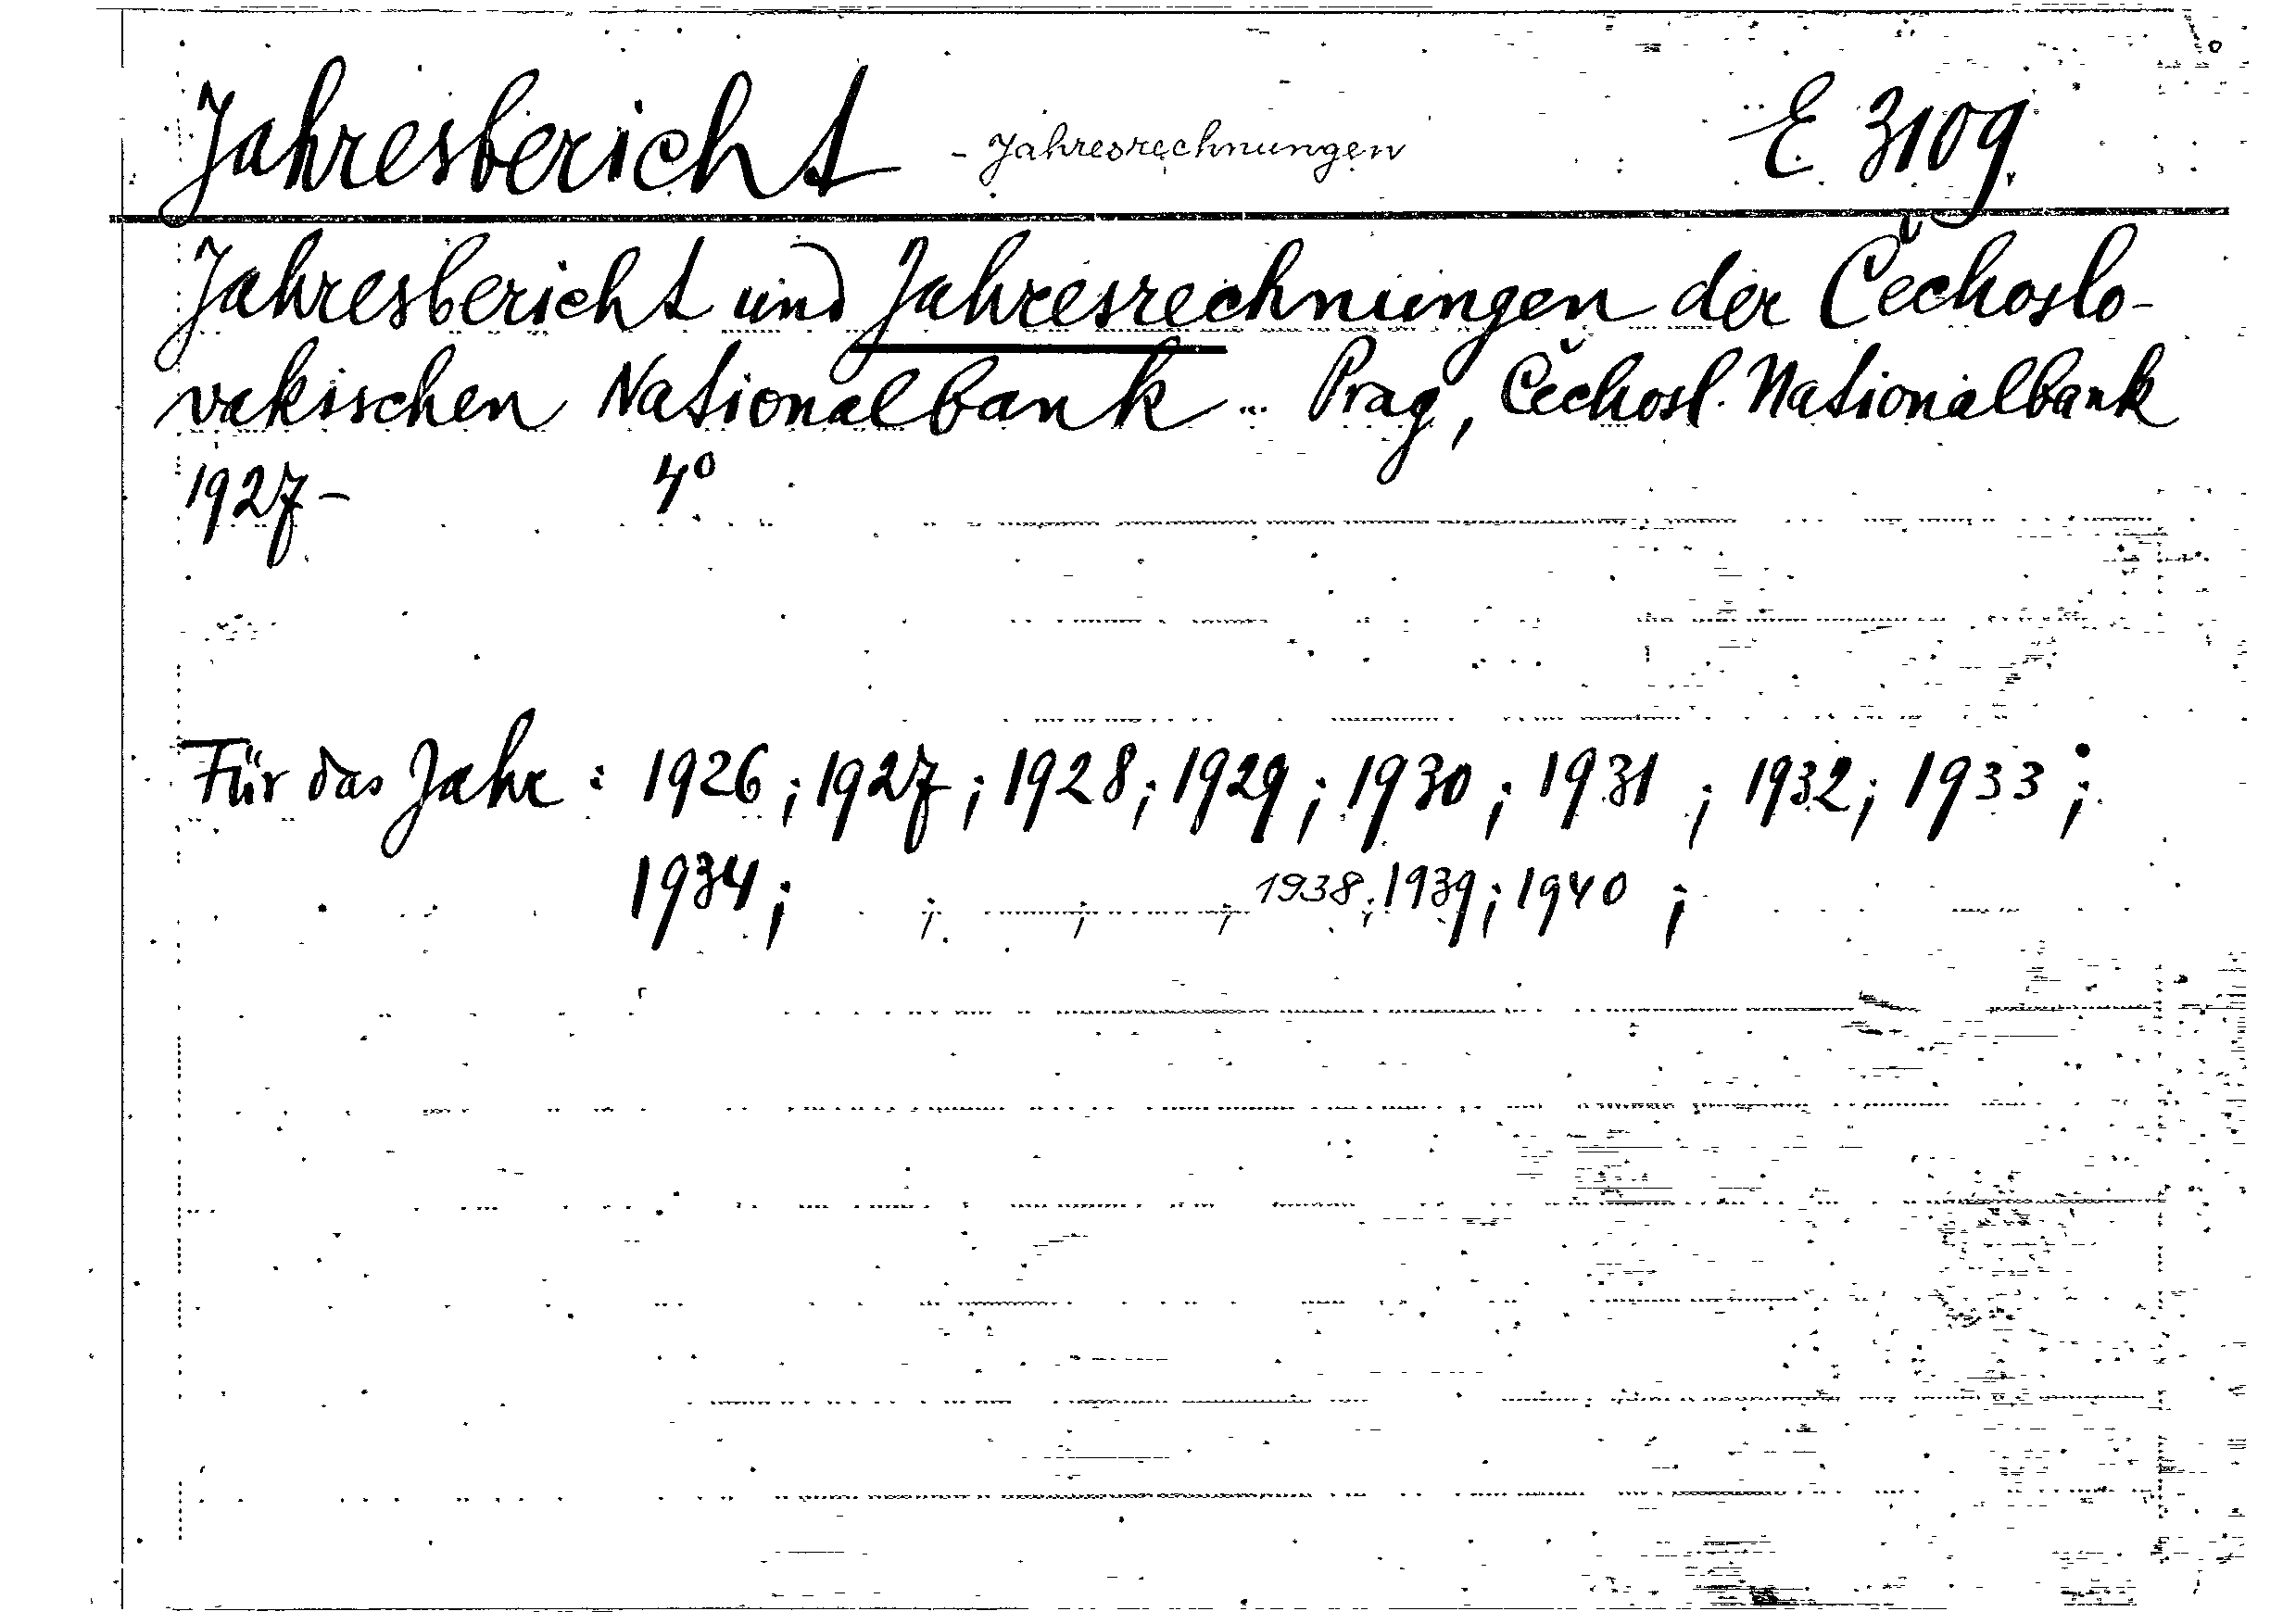 Jahresbericht - Jahresrechnungen E 3109
Jahresbericht und Jahresrechnungen der Čechoslo-
vakischen Nationalbank ... Prag, Čechosl. Nationalbank
1927- 4°
Für das Jahr : 1926 ; 1927 ; 1928 ; 1929 ; 1930 ; 1931 ; 1932 ; 1933 ;
1934 ; ; ; ; 1938 ; 1939 ; 1940 ;